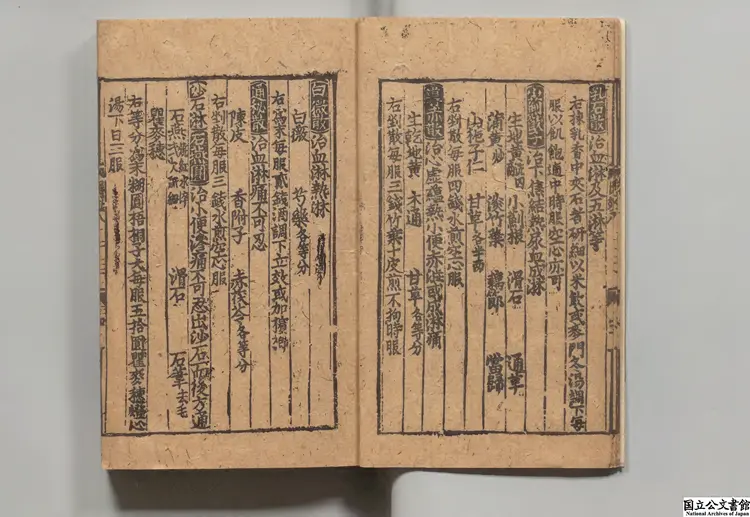 乳石散治血淋及五淋等
右揀乳香中夾石者研細以米飲或麥門冬湯調下每
服以飢飽適中時服空心亦可
治下焦結熱尿血成淋
生地黃 小薊根 滑石 通草
蒲黃炒 淡竹葉 藕節 當歸
山梔子仁 甘草各半兩
右剉散每服四錢水煎空心服
導赤散治心虛蘊熱小便赤澁或成淋痛
生乾地黃 木通 甘草各等分
右剉散每服三錢竹葉十皮煎不拘時服
白薇散治血淋熱淋
白薇 芍藥各等分
右爲末每服貳錢酒調下立效或加檳榔
通秘散治血淋痛不可忍
陳皮 香附子 赤茯苓各等分
右剉散每服三錢水煎空心服
沙石淋 石燕圓 治小便滲痛不可忍出沙石而後方通
石燕 滑石 石葦去毛
瞿麥穗
右等分爲末糊圓梧桐子大每服五拾圓瞿麥穗燈心
湯下日三服
国立公文書館
National Archives of Japan